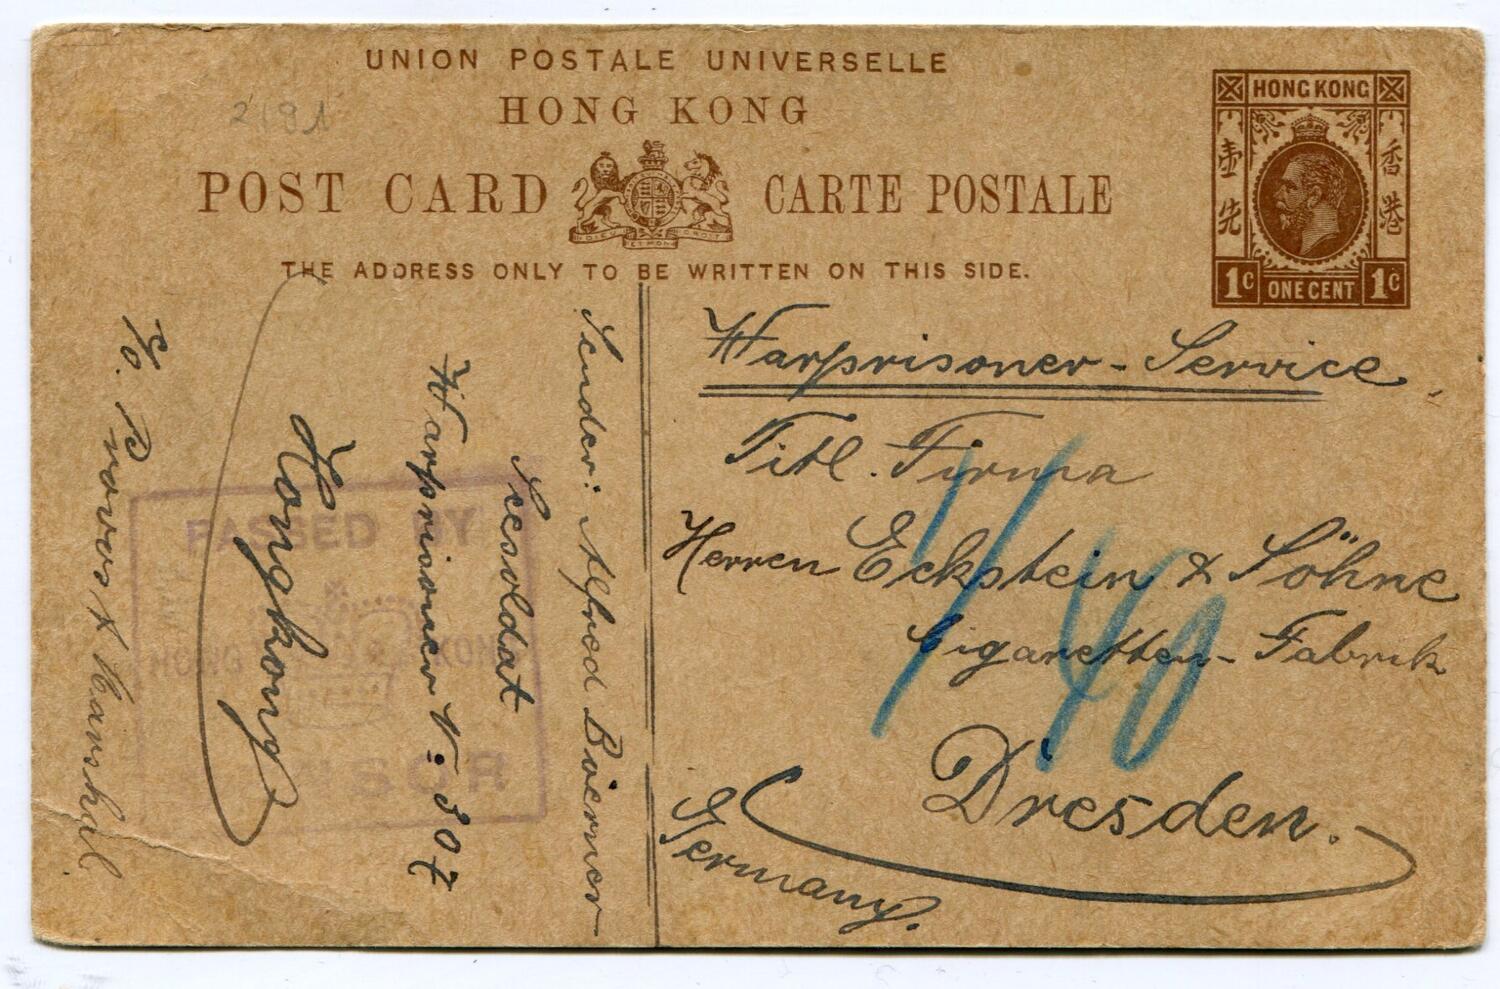 UNION POSTALE UNIVERSELLE
HONG KONG
POST CARD CARTE POSTALE
THE ADDRESS ONLY TO BE WRITTEN ON THIS SIDE.
HONG KONG
壹 香
先 港
1c ONE CENT 1c
DIEU ET MON DROIT
2191
Warprisoner-Service
Titl. Firma
Herren Eckstein & Söhne
Cigaretten-Fabrik
Dresden.
Germany.
1/40
Sender: Alfred Boerner
Seesoldat
Warprisoner No. 307
Hongkong
c/o. Provost Marshal
PASSED BY
HONG KONG